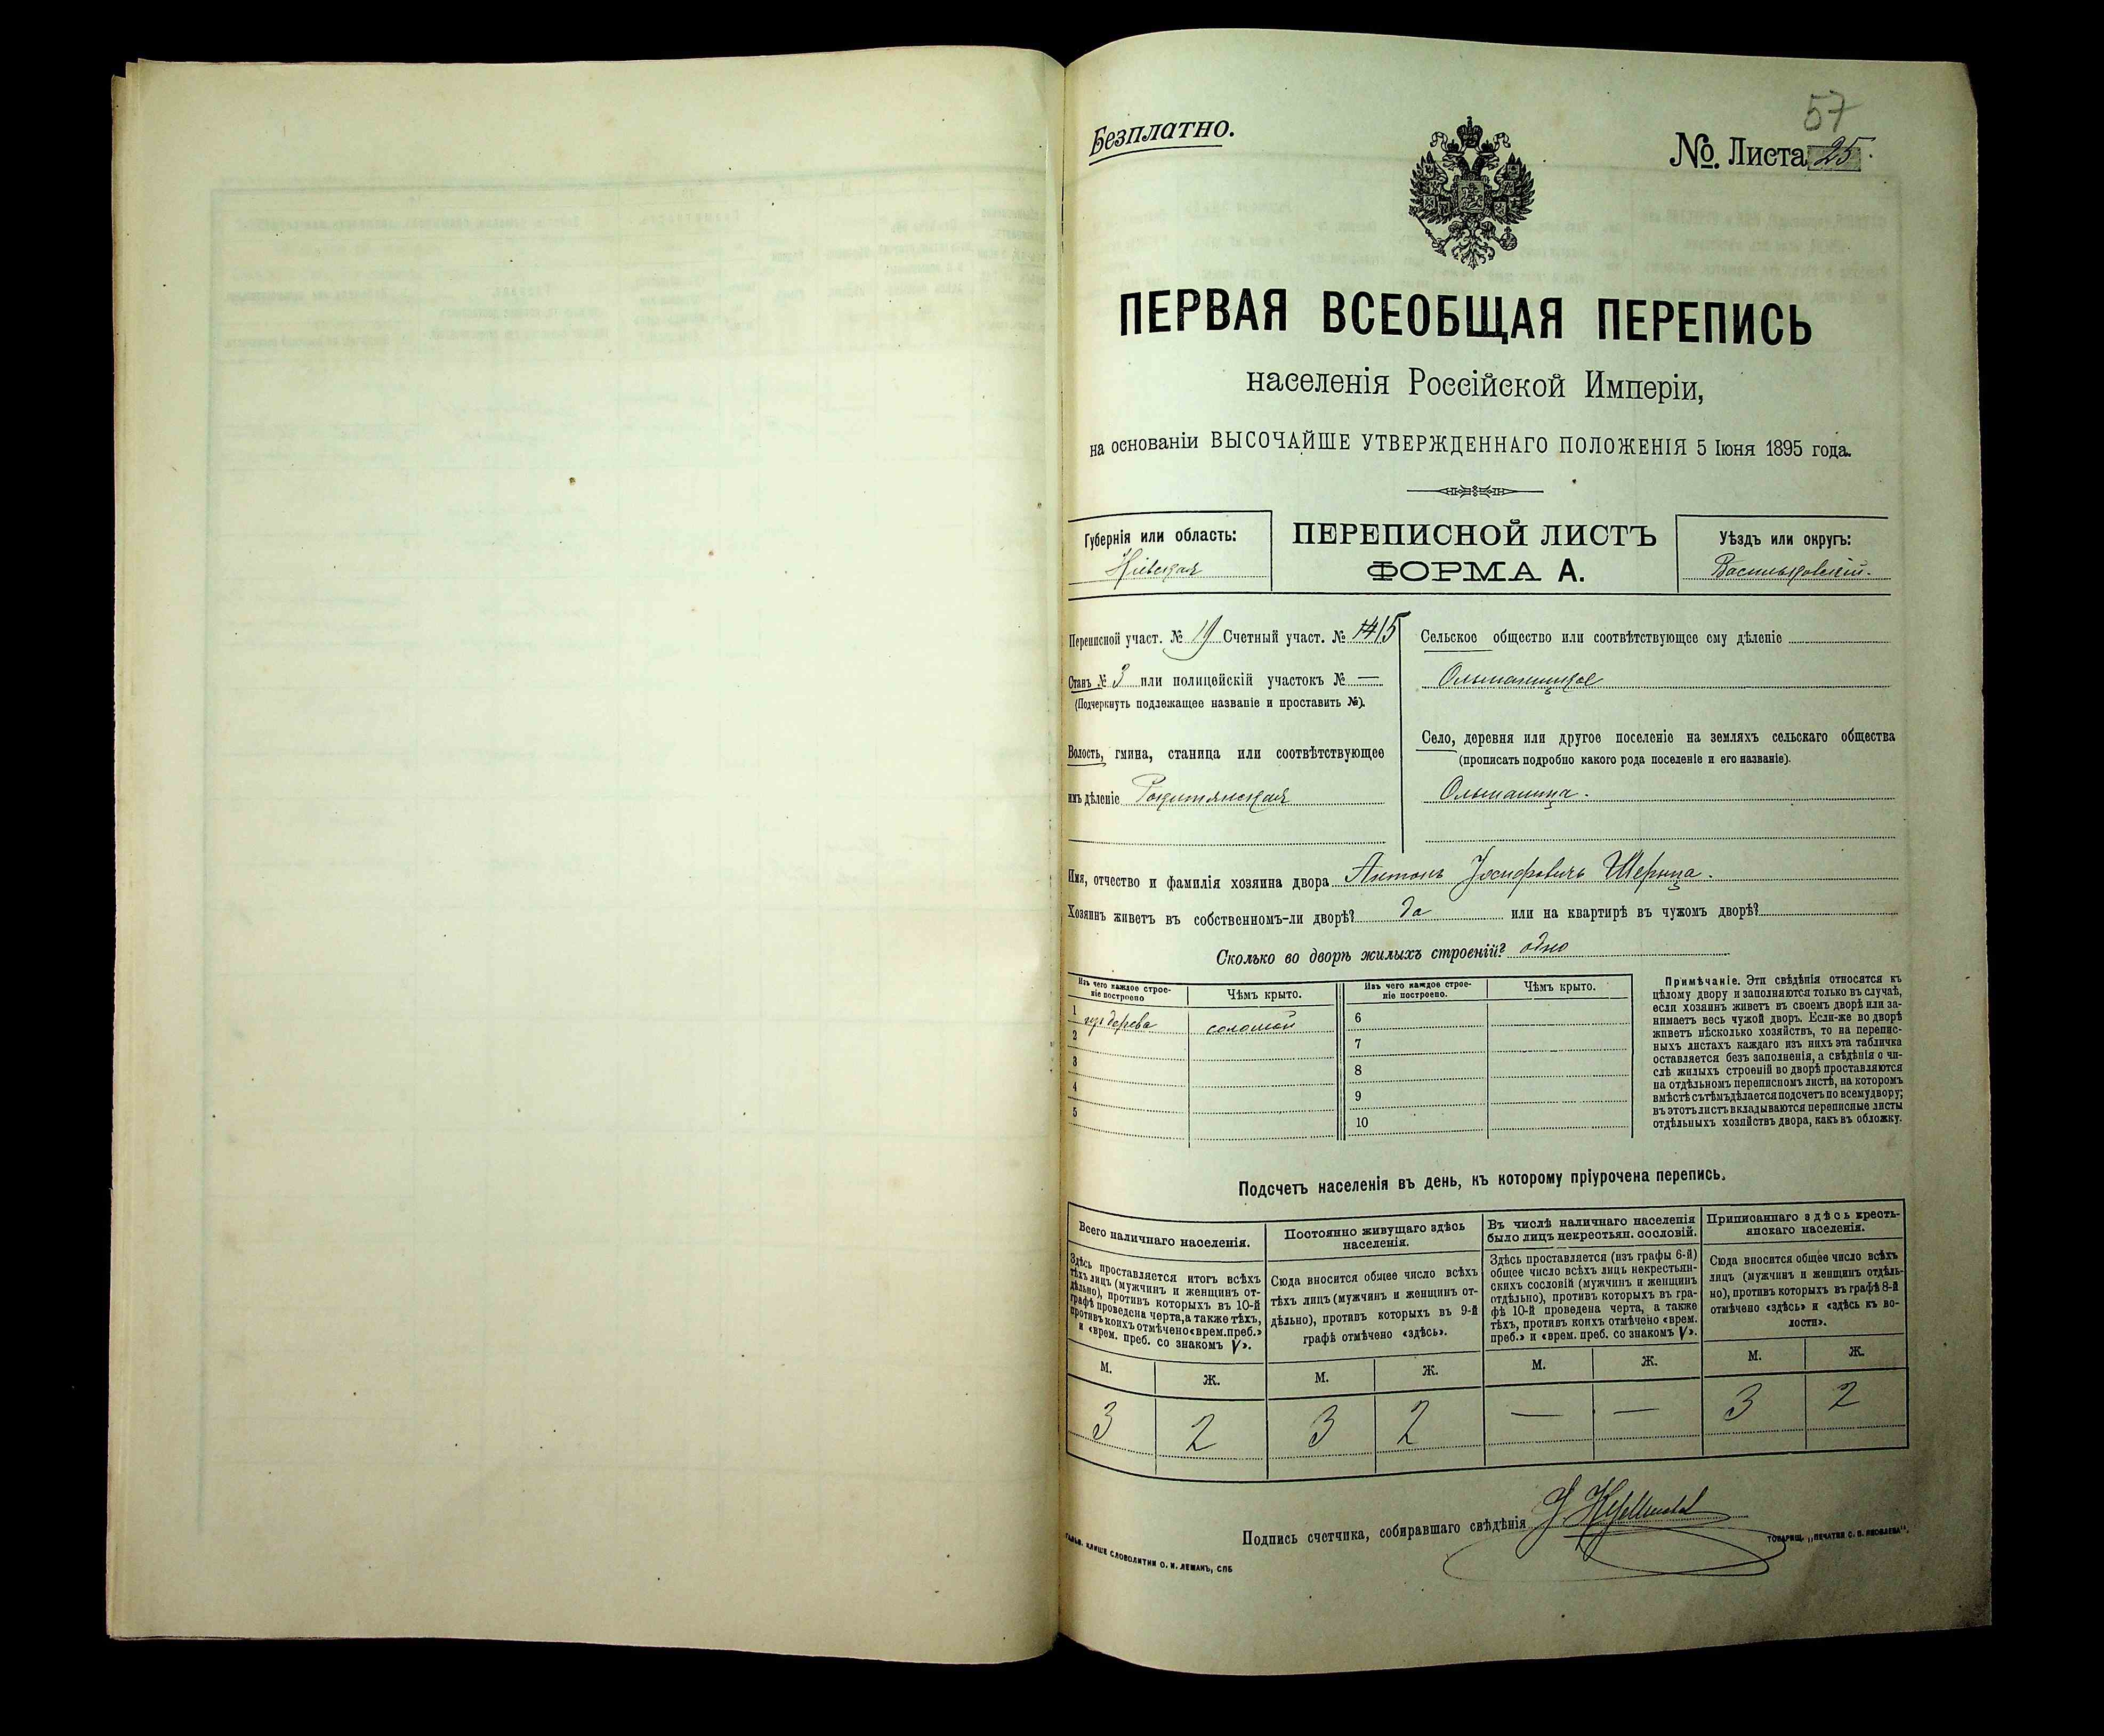 57
Безплатно.
№. Листа 25.
ПЕРВАЯ ВСЕОБЩАЯ ПЕРЕПИСЬ
населенія Россійской Имперіи,
на основаніи ВЫСОЧАЙШЕ УТВЕРЖДЕННАГО ПОЛОЖЕНІЯ 5 Іюня 1895 года.
Губернія или область:
Кіевская
ПЕРЕПИСНОЙ ЛИСТЪ
ФОРМА А.
Уѣздъ или округъ:
Васильковскій.
Переписной участ. № Счетный участ. № 15
Станъ № 3 или полицейскій участокъ № —
(Подчеркнуть подлежащее названіе и проставить №).
Волость, гмина, станица или соотвѣтствующее
имъ дѣленіе Рокитянская
Сельское общество или соотвѣтствующее ему дѣленіе
Ольшаницкое
Село, деревня или другое поселеніе на земляхъ сельскаго общества
(прописать подробно какого рода поселеніе и его названіе).
Ольшаница.
Имя, отчество и фамилія хозяина двора Антонъ Іосифовичъ
Хозяинъ живетъ въ собственномъ-ли дворѣ? да или на квартирѣ въ чужомъ дворѣ?
Сколько во дворѣ жилыхъ строеній? одно
Изъ чего каждое строе-
ніе построено
Чѣмъ крыто.
Изъ чего каждое строе-
ніе построено.
Чѣмъ крыто.
1 изъ дерева соломой
2
3
4
5
6
7
8
9
10
Примѣчаніе. Эти свѣдѣнія относятся къ
цѣлому двору и заполняются только въ случаѣ,
если хозяинъ живетъ въ своемъ дворѣ или за-
нимаетъ весь чужой дворъ. Если-же во дворѣ
живетъ нѣсколько хозяйствъ, то на перепис-
ныхъ листахъ каждаго изъ нихъ эта табличка
оставляется безъ заполненія, а свѣдѣнія о чи-
слѣ жилыхъ строеній во дворѣ проставляются
на отдѣльномъ переписномъ листѣ, на которомъ
вмѣстѣ съ тѣмъ дѣлается подсчетъ по всему двору;
въ этотъ листъ вкладываются переписные листы
отдѣльныхъ хозяйствъ двора, какъ въ обложку.
Подсчетъ населенія въ день, къ которому пріурочена перепись.
Всего наличнаго населенія.
Здѣсь проставляется итогъ всѣхъ
тѣхъ лицъ (мужчинъ и женщинъ от-
дѣльно), противъ которыхъ въ 10-й
графѣ проведена черта, а также тѣхъ,
противъ коихъ отмѣчено «врем. преб.»
и «врем. преб. со знакомъ V».
М. Ж.
3 2
Постоянно живущаго здѣсь
населенія.
Сюда вносится общее число всѣхъ
тѣхъ лицъ (мужчинъ и женщинъ от-
дѣльно), противъ которыхъ въ 9-й
графѣ отмѣчено «здѣсь».
М. Ж.
3 2
Въ числѣ наличнаго населенія
было лицъ некрестьян. сословій.
Здѣсь проставляется (изъ графы 6-й)
общее число всѣхъ лицъ некрестьян-
скихъ сословій (мужчинъ и женщинъ
отдѣльно), противъ которыхъ въ гра-
фѣ 10-й проведена черта, а также
тѣхъ, противъ коихъ отмѣчено «врем.
преб.» и «врем. преб. со знакомъ V».
М. Ж.
— —
Приписаннаго здѣсь кресть-
янскаго населенія.
Сюда вносится общее число всѣхъ
лицъ (мужчинъ и женщинъ отдѣль-
но), противъ которыхъ въ графѣ 8-й
отмѣчено «здѣсь» и «здѣсь къ во-
лости».
М. Ж.
3 2
Подпись счетчика, собиравшаго свѣдѣнія
ГАЛЬВ. КЛИШЕ СЛОВОЛИТНИ О. И. ЛЕМАНЪ, СПБ
ТОВАРИЩ. „ПЕЧАТНЯ С. П. ЯКОВЛЕВА".